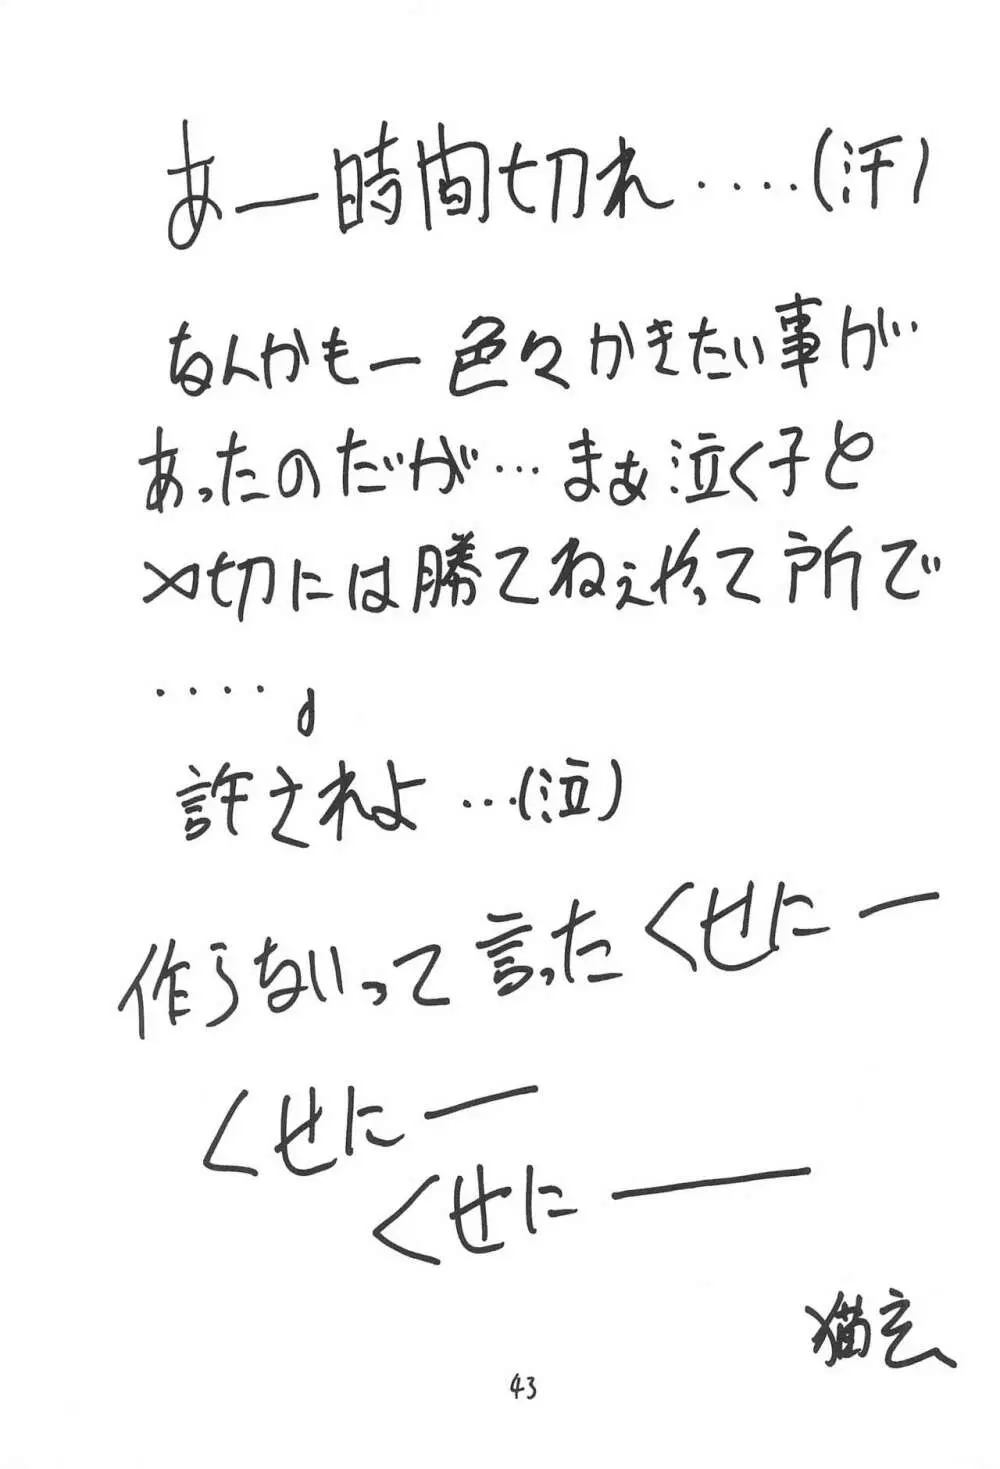 あー時間切れ‥‥‥(汗)
なんかもー色々かきたい事が
あったのだが…まぁ泣く子と
〆切には勝てねぇやって所で
‥‥。
許されよ…(泣)
作らないって言ったくせにー
くせにー
くせにー
猫玄
43